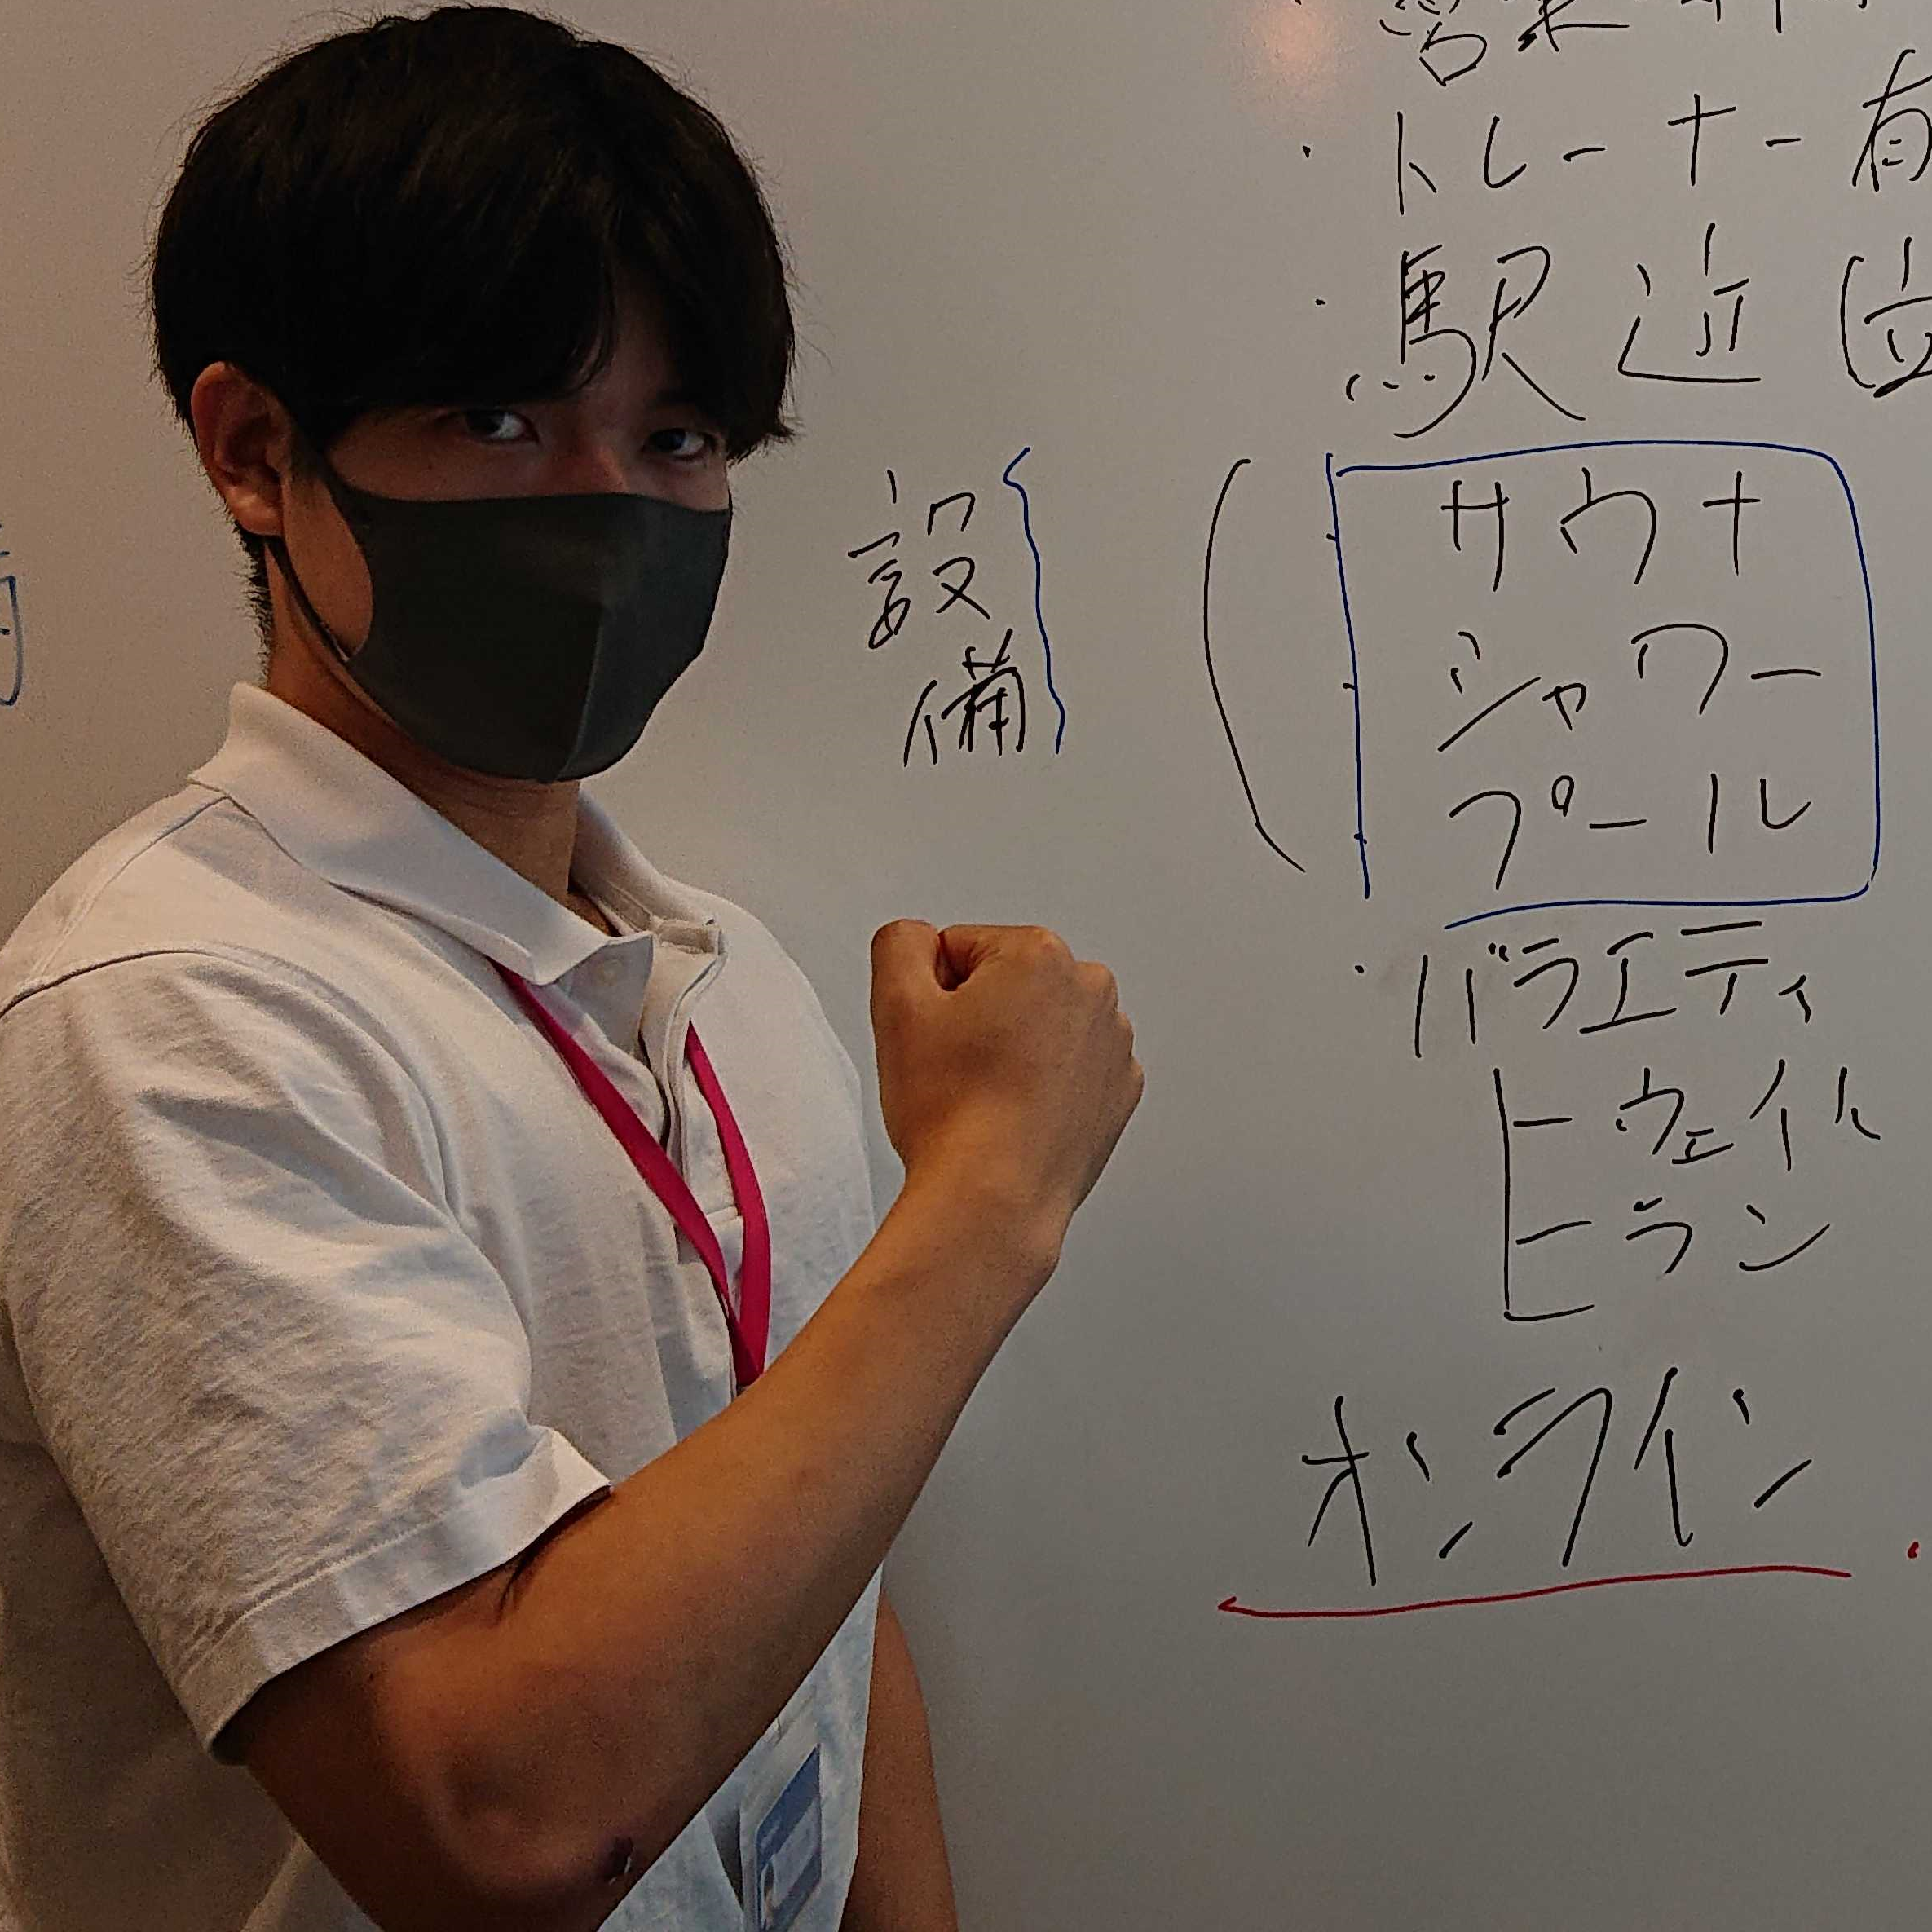 営業時
・トレーナー有
・駅近位
設備
サウナ
シャワー
プール
・バラエティ
ウェイト
ラン
オンライン